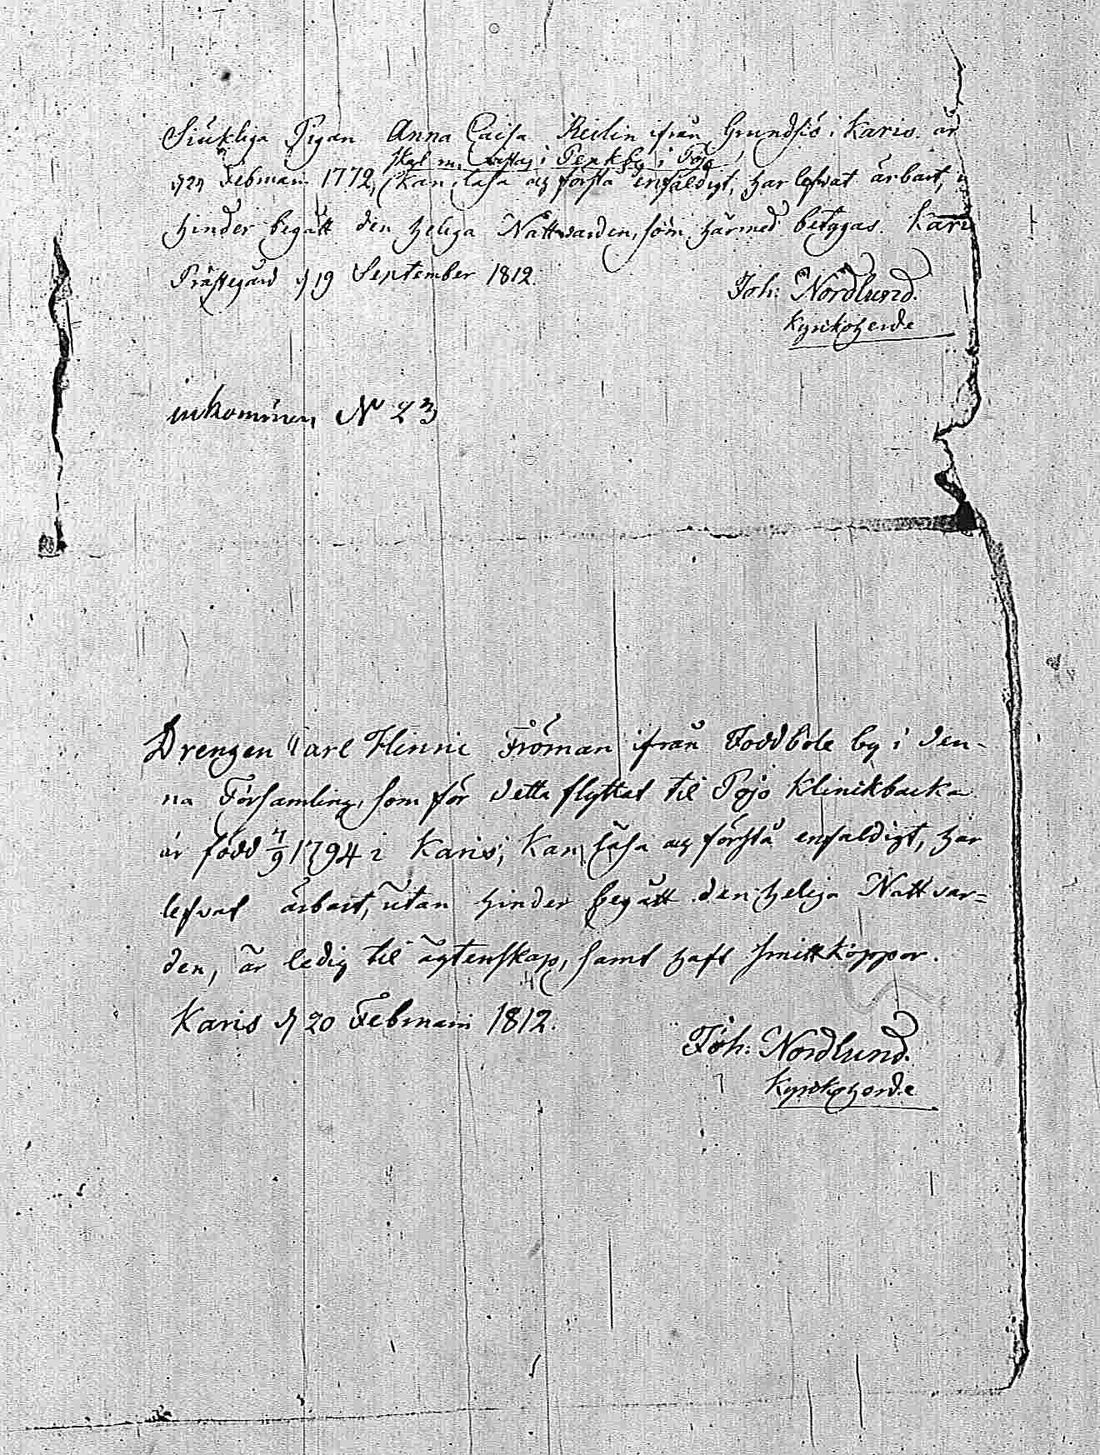 Siukliga Pigan Anna Caisa Reilin ifrån Grundsjö i Karis är
skal nu vistas i Penkby i Pojo
d 24 Februarii 1772, kan läsa och förstå enfaldigt, har lefvat ärbart, u
hinder begått den heliga Nattvarden, som härmed betygas. Karis
Prästegård d 19 September 1812.
Joh: Nordlund.
Kyrkoherde
inkommen N 23
Drengen Carl Hinric Fröman ifrån Foddböle by i den-
na Församling, som för detta flyttat til Pojo Klinkbacka
är född 4/9 1794 i Karis, kan läsa och förstå enfaldigt, har
lefvat ärbart, utan hinder begått den heliga Nattvar=
den, är ledig til ägtenskap, samt haft smittkoppor.
Karis d 20 Februarii 1812.
Joh: Nordlund.
Kyrkoherde